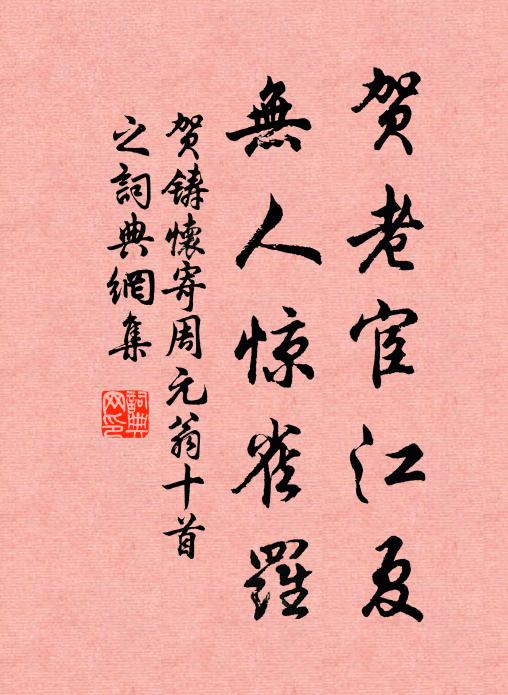 贺老宦江夏
無人惊雀羅
贺鑄懷寄周元翁十首
之詞典網集
詞典网印